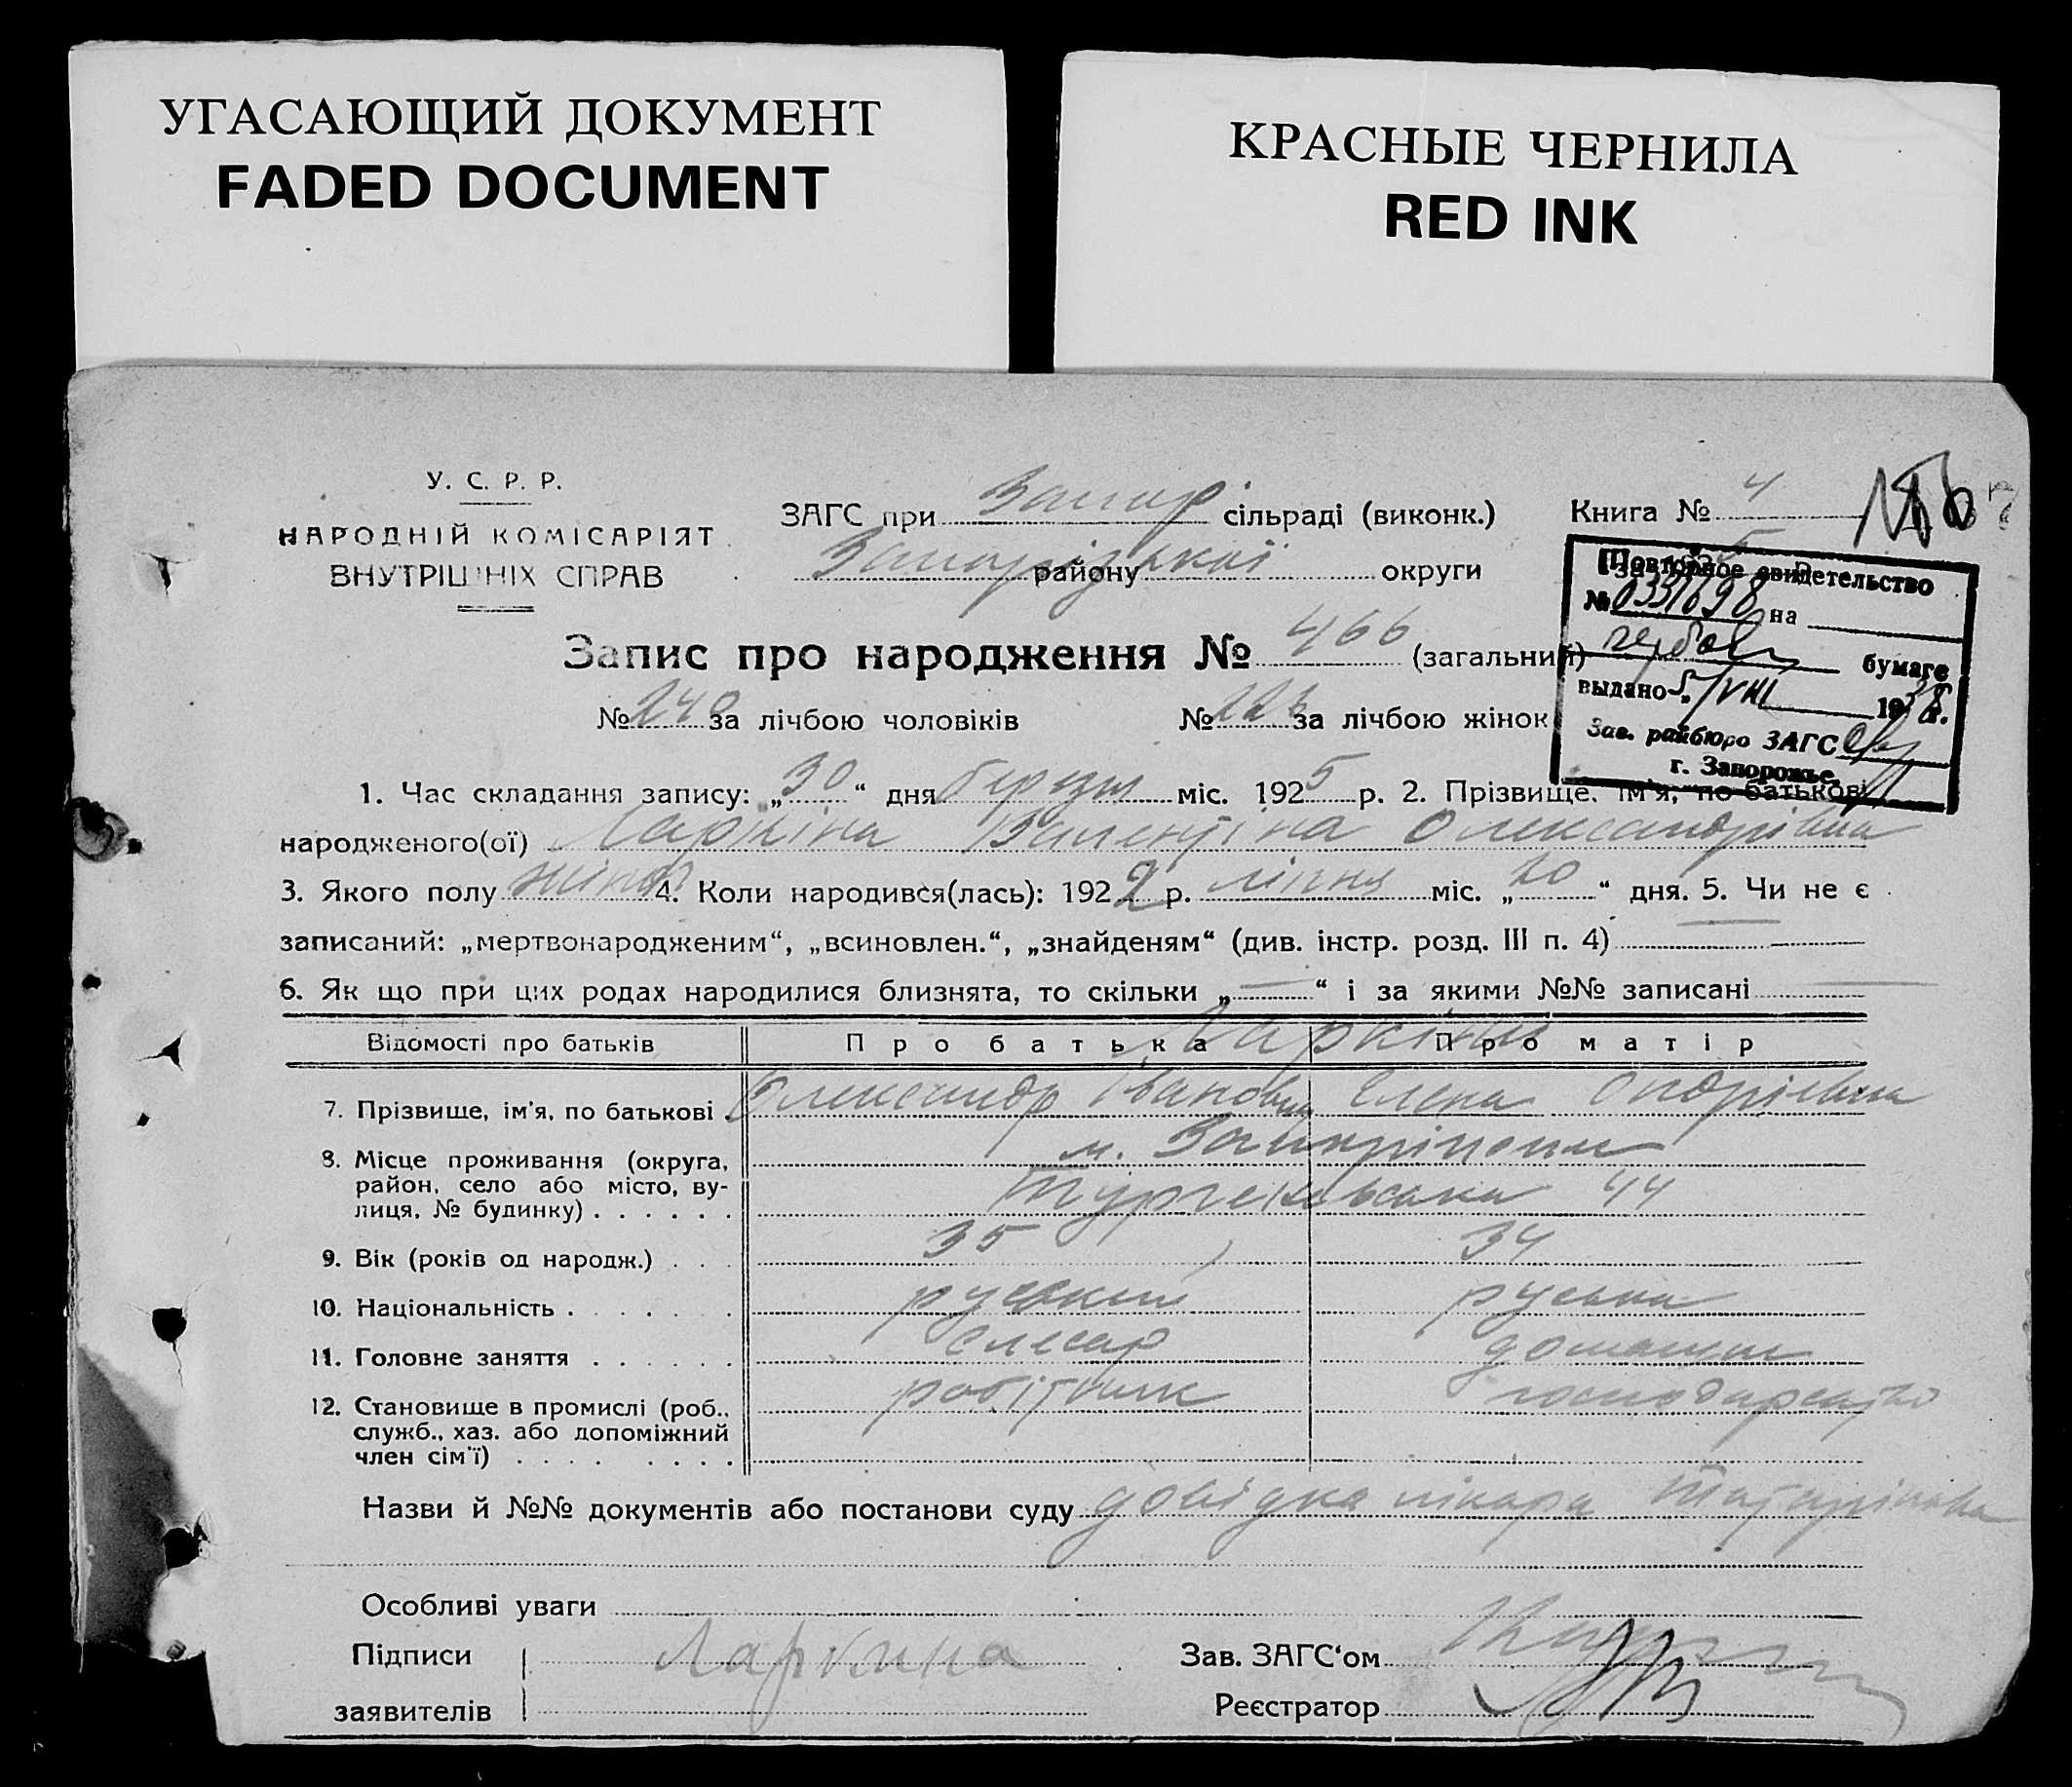 УГАСАЮЩИЙ ДОКУМЕНТ
FADED DOCUMENT
КРАСНЫЕ ЧЕРНИЛА
RED INK
У. С. Р. Р.
НАРОДНІЙ КОМІСАРІЯТ
ВНУТРІШНІХ СПРАВ
ЗАГС при Запор сільраді (виконк.)
Запорізької району округи
Книга № 4
Повторное свидетельство
№ 0331698 на
гербов бумаге
выдано „5/VIII 1938 г.
Зав. райбюро ЗАГС
г. Запорожье
Запис про народження № 466 (загальний)
№ 240 за лічбою чоловіків № 226 за лічбою жінок
1. Час складання запису: „30“ дня березня міс. 1925 р. 2. Прізвище, ім'я, по батькові
народженого(ої) Ларкіна Валентіна Олександрівна
3. Якого полу жіноч 4. Коли народився(лась): 1922 р. липня міс. „20“ дня. 5. Чи не є
записаний: „мертвонародженим“, „всиновлен.“, „знайденям“ (див. інстр. розд. III п. 4)
6. Як що при цих родах народилися близнята, то скільки „—“ і за якими №№ записані
Відомості про батьків Про батька Про матір
Ларкіни
7. Прізвище, ім'я, по батькові Олександр Іванович Елена Андріевна
8. Місце проживання (округа, район, село або місто, вулиця, № будинку) м. Запоріжжя
Тургенівська 44
9. Вік (років од народж.) 35 34
10. Національність руський руська
11. Головне заняття слесар домашне
12. Становище в промислі (роб., служб., хаз. або допоміжний член сім'ї) робітник господарство
Назви й №№ документів або постанови суду довідка лікара
Особливі уваги
Підписи заявителів Ларкина
Зав. ЗАГС'ом
Реєстратор